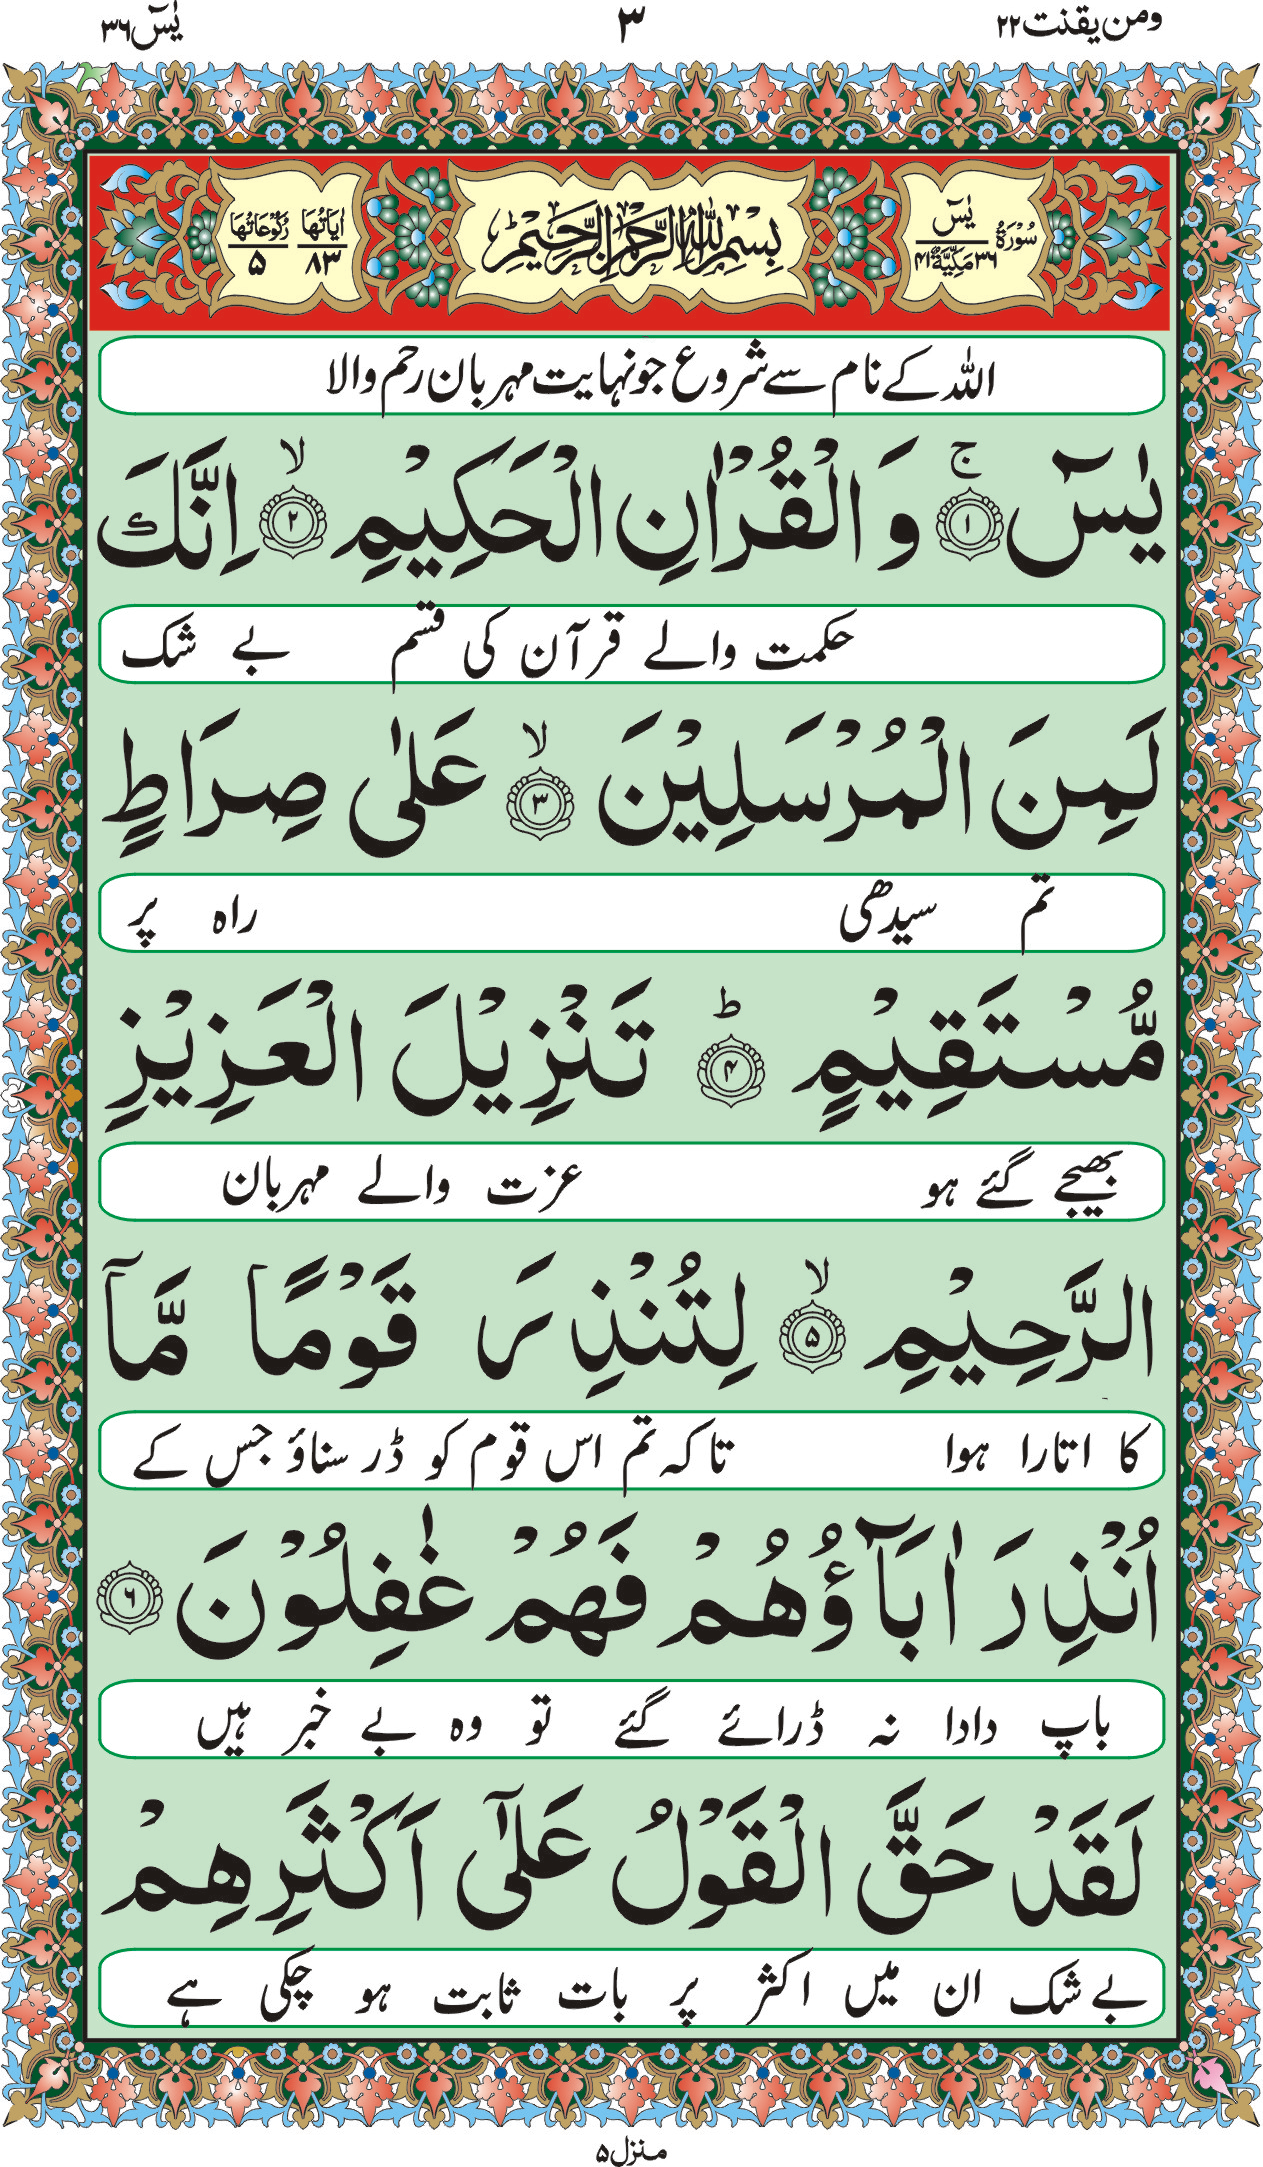 ومن یقنت ۲۲
۳
یٰسٓ ۳۶
سُوْرَۃُ یٰسٓ ۳۶ مَکِّیَّۃٌ ۴۱
بِسْمِ اللّٰهِ الرَّحْمٰنِ الرَّحِیْمِ
اٰیَاتُهَا ۸۳
رُكُوْعَاتُهَا ۵
اللہ کے نام سے شروع جو نہایت مہربان رحم والا
یٰسٓ ۚ﴿۱﴾ وَ الْقُرْاٰنِ الْحَكِیْمِ ۙ﴿۲﴾ اِنَّكَ
حکمت والے قرآن کی قسم بے شک
لَمِنَ الْمُرْسَلِیْنَ ۙ﴿۳﴾ عَلٰى صِرَاطٍ
تم سیدھی راہ پر
مُّسْتَقِیْمٍ ؕ﴿۴﴾ تَنْزِیْلَ الْعَزِیْزِ
بھیجے گئے ہو عزت والے مہربان
الرَّحِیْمِ ۙ﴿۵﴾ لِتُنْذِرَ قَوْمًا مَّاۤ
کا اتارا ہوا تاکہ تم اس قوم کو ڈر سناؤ جس کے
اُنْذِرَ اٰبَآؤُهُمْ فَهُمْ غٰفِلُوْنَ ﴿۶﴾
باپ دادا نہ ڈرائے گئے تو وہ بے خبر ہیں
لَقَدْ حَقَّ الْقَوْلُ عَلٰۤى اَكْثَرِهِمْ
بے شک ان میں اکثر پر بات ثابت ہو چکی ہے
منزل ۵